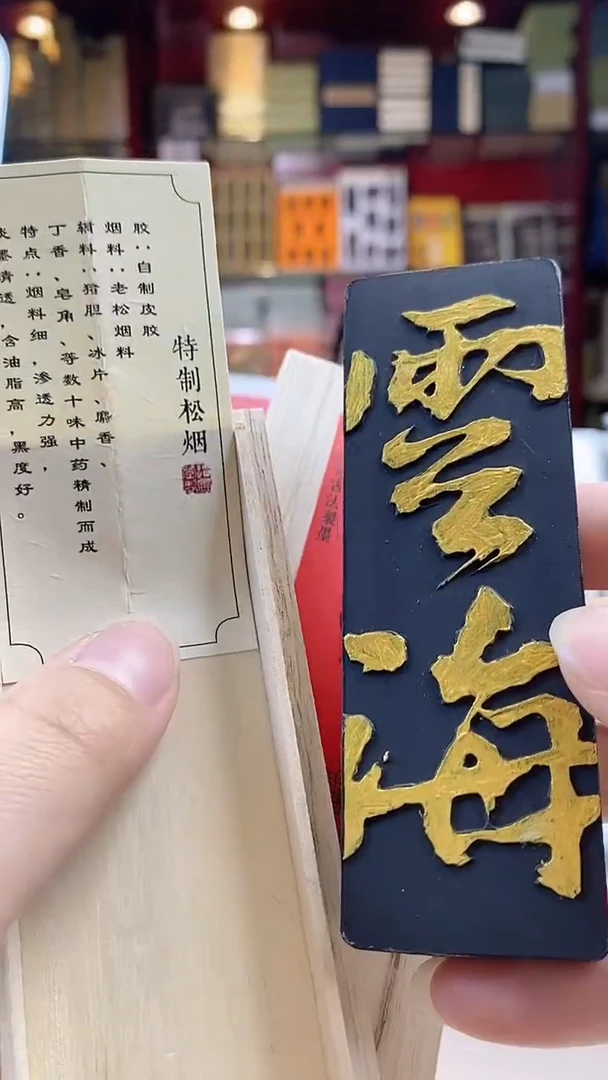 特制松烟
胶：自制皮胶
烟料：老松烟料
辅料：猪胆、冰片、麝香、
丁香、皂角、等数十味中药精制而成
特点：烟料细，渗透力强，
淡墨清透，含油脂高，黑度好。
古法製墨
雲海